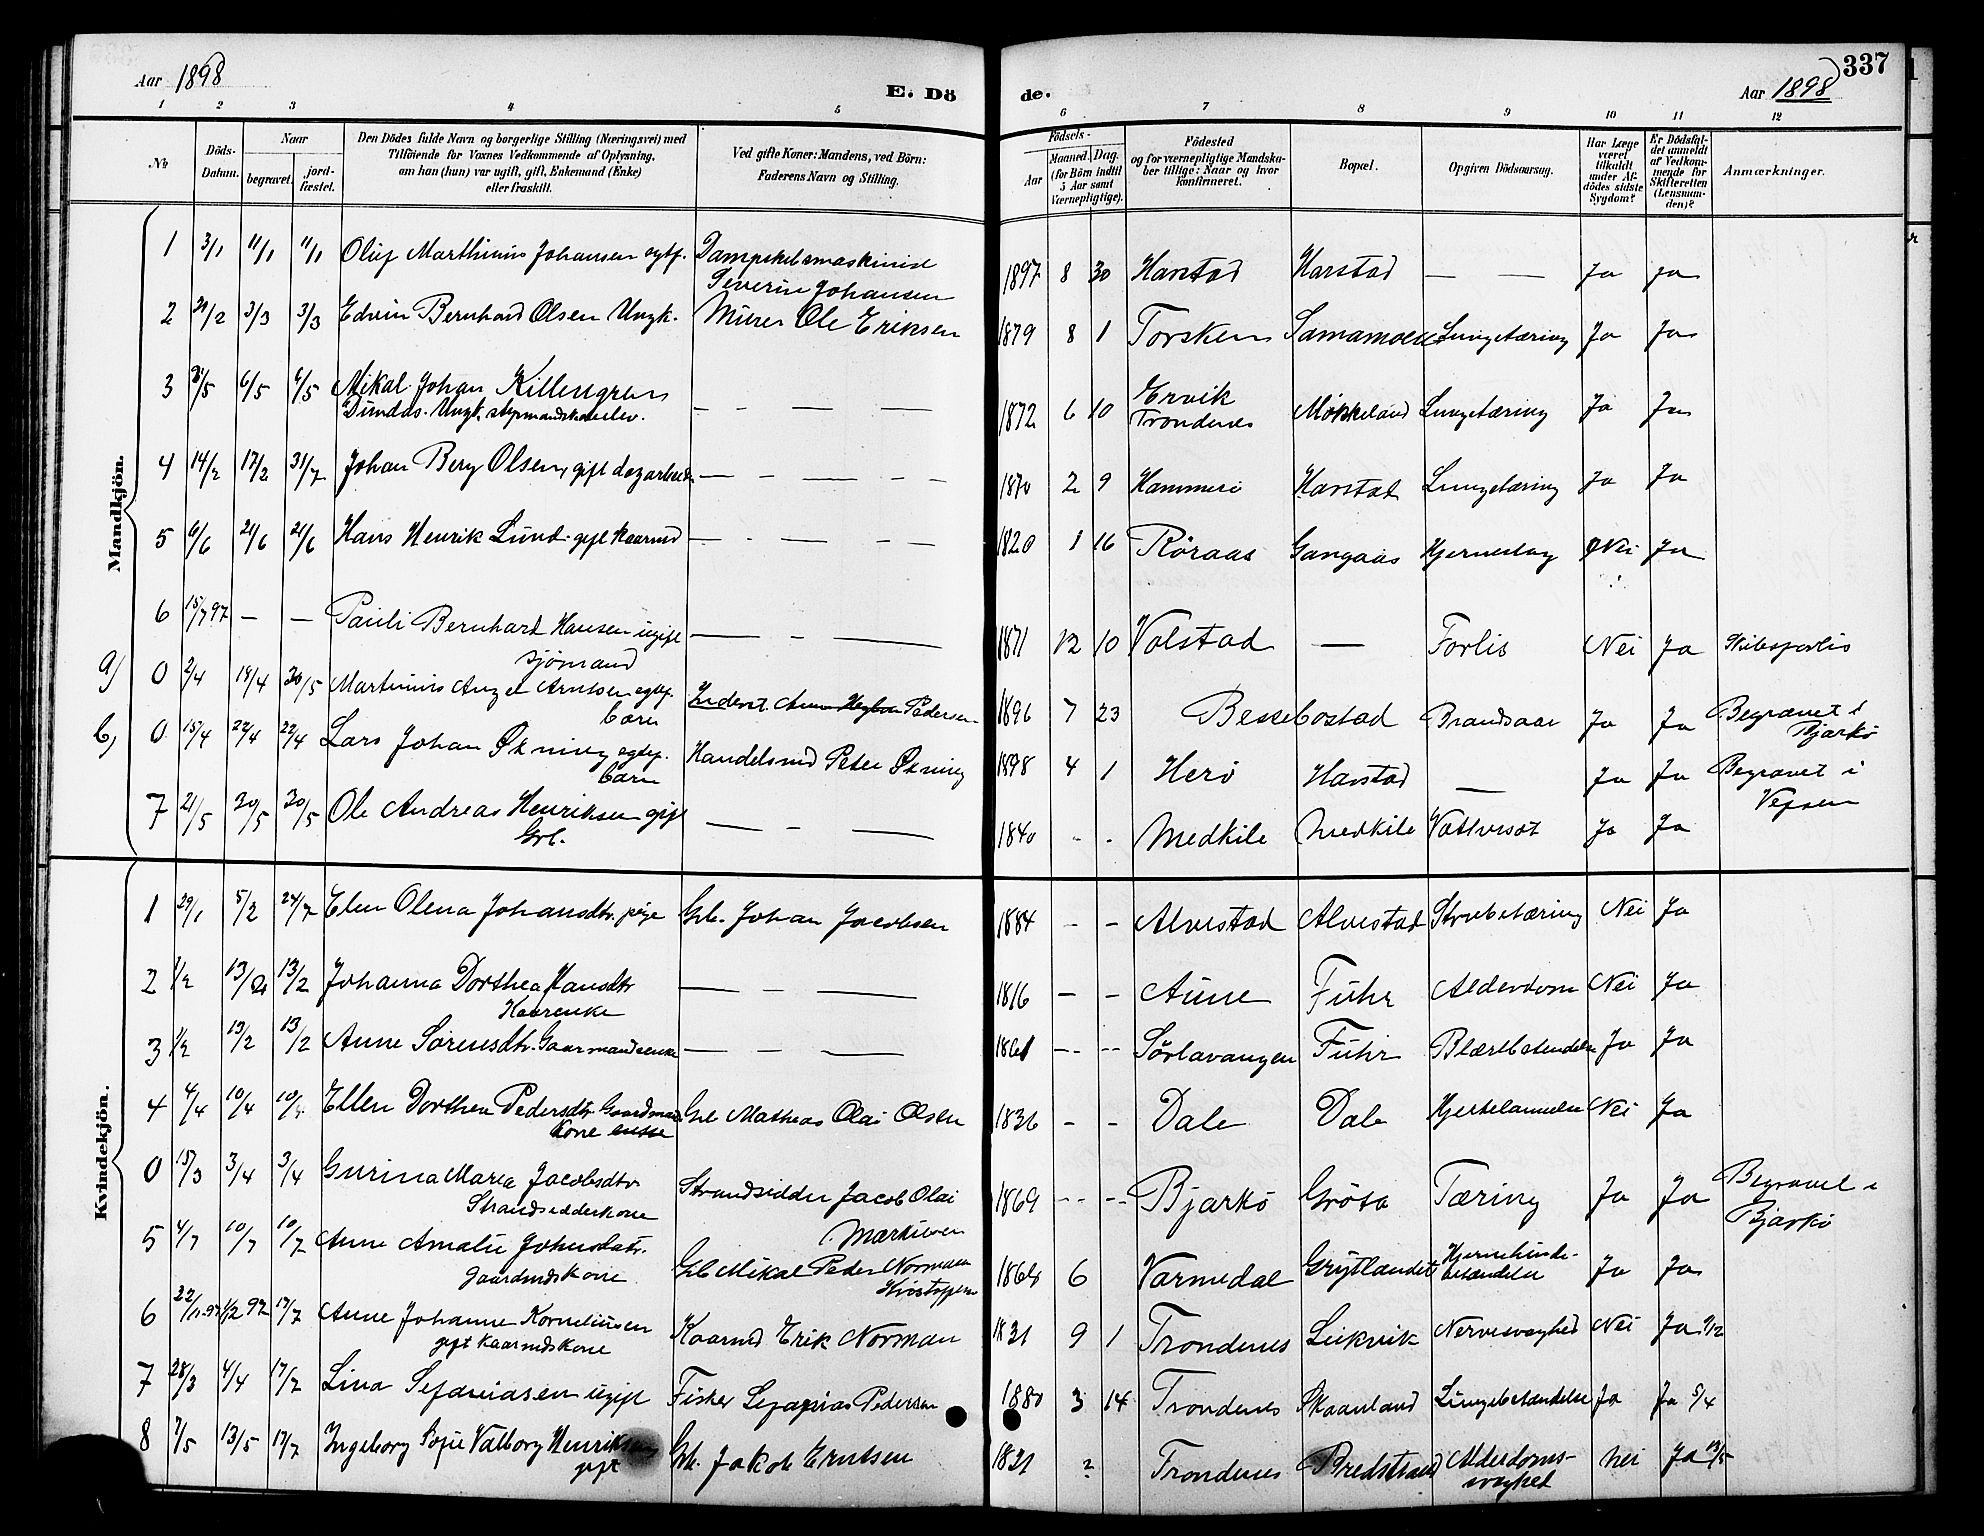 337
Aar 1898
E. Dö
de.
Aar 1898
1 2 3 4 5 6 7 8 9 10 11 12
No
Döds-Datum.
Naar
begravet.
jord-fæstet.
Den Dödes fulde Navn og borgerlige Stilling (Næringsvei) med
Tilföiende for Voxnes Vedkommende af Oplysning,
om han (hun) var ugift, gift, Enkemand (Enke)
eller fraskilt.
Ved gifte Koner: Mandens, ved Börn:
Faderens Navn og Stilling.
Födsels-
Aar
Maaned.
Dag.
(for Börn indtil
5 Aar samt
Værnepligtige).
Födested
og for værnepligtige Mandska-
ber tillige: Naar og hvor
konfirmeret.
Bopæl.
Opgiven Dödsaarsag.
Har Læge
været
tilkaldt
under Af-
dödes sidste
Sygdom?
Er Dödsfal-
det anmeldt
af Vedkom-
mende for
Skifteretten
(Lensman-
den)?
Anmærkninger.
Mandkjön.
1 3/1 11/1 11/1 Oluf Marthinius Johansen egtf. Dampskibsmaskinist
Severin Johansen 1897 8 30 Harstad Harstad — — Ja Ja
2 3/3 3/3 Edvin Bernhard Olsen Ungk. Murer Ole Eriksen 1879 8 1 Torsken Samamoen Lungetæring Ja Ja
3 6/5 6/5 Mikal Johan Killengren
Ungk. styrmandskoleelev. — — — — 1872 6 10 Ervik
Trondenes Møkkeland Lungetæring Ja Ja
4 14/2 17/2 31/7 Johan Berg Olsen, gift dagarbeid. — — — — — 1870 2 9 Hammerö Harstad Lungetæring Ja Ja
5 6/6 21/6 21/6 Hans Henrik Lund gift Kaarmd — — — — — 1820 1 16 Røraas Gangaas Hjerneslag Nei Ja
6 15/7 97 — — Pauli Bernhard Hansen ugift
sjömand — — — 1871 12 10 Volstad — Forlis Nei Ja Skibsforlis
a) 0 2/4 18/4 30/5 Martinius Angel Arntsen egtef.
barn Pedersen 1896 7 23 Bessebostad Brandsaar Ja Ja Begravet i
Bjarkö
b) 0 15/4 22/4 22/4 Lars Johan Økning egtef.
barn Handelsmd Peter Økning 1898 4 1 Herö Harstad — Ja Ja Begravet i
Vefsen
7 21/5 30/5 30/5 Ole Andreas Henriksen gift
Grb. — — — 1840 - - Medkile Medkile Vattersot Ja Ja
Kvindekjön.
1 29/1 5/2 24/7 Elen Olena Johansdtr. pige Grb. Johan Jacobsen 1884 — — Alvestad Alvestad Strubetæring Nei Ja
2 1/2 13/2 13/2 Johanna Dorthea Hansdtr
Kaarenke — — — 1816 — — Aune Fuhr Alderdom Nei Ja
3 1/2 13/2 13/2 Anne Sörensdtr. Gaarmandsenke — — — -- -- Sörlavangen Fuhr Blærebetændelse Ja Ja
4 4/4 10/4 10/4 Ellen Dorthea Pedersdtr Gaardmands
Kone Grb Mathias Olai Olsen 1836 - - Dale Dale Hjertelammelse Nei Ja
0 15/3 3/4 3/4 Gurina Maria Jacobsdtr
Strandsidderkone Strandsidder Jacob Olai
Markusen 1869 -- -- Bjarkö Gröta Tæring Ja Ja Begravet i
Bjarkö
5 4/7 10/7 10/7 Anne Amalie Johnsdatr.
gaardmdskone Grb Mikal Peder Norman 1864 6 Varmedal Grytlandet Hjernehinde-
betændelse Ja Ja
6 22/11-97 1/12 97 17/7 Anne Johanne Korneliusen
gift Kaarmdskone Kaarmd Erik Norman 1821 9 1 Trondenes Leikvik Nervesvaghed Nei Ja 9/12
7 28/3 4/4 17/7 Lina Sefaniasen ugift Fisker Sefanias Pedersen 1880 3 14 Trondenes Skaanland Lungebetændelse Ja Ja 5/4
8 7/5 13/5 17/7 Ingeborg Sofie Valborg Henriksen
gift Grb. Jakob Erntsen 1821 ? Trondenes Bredstrand Alderdoms-
svaghet nei Ja 13/5